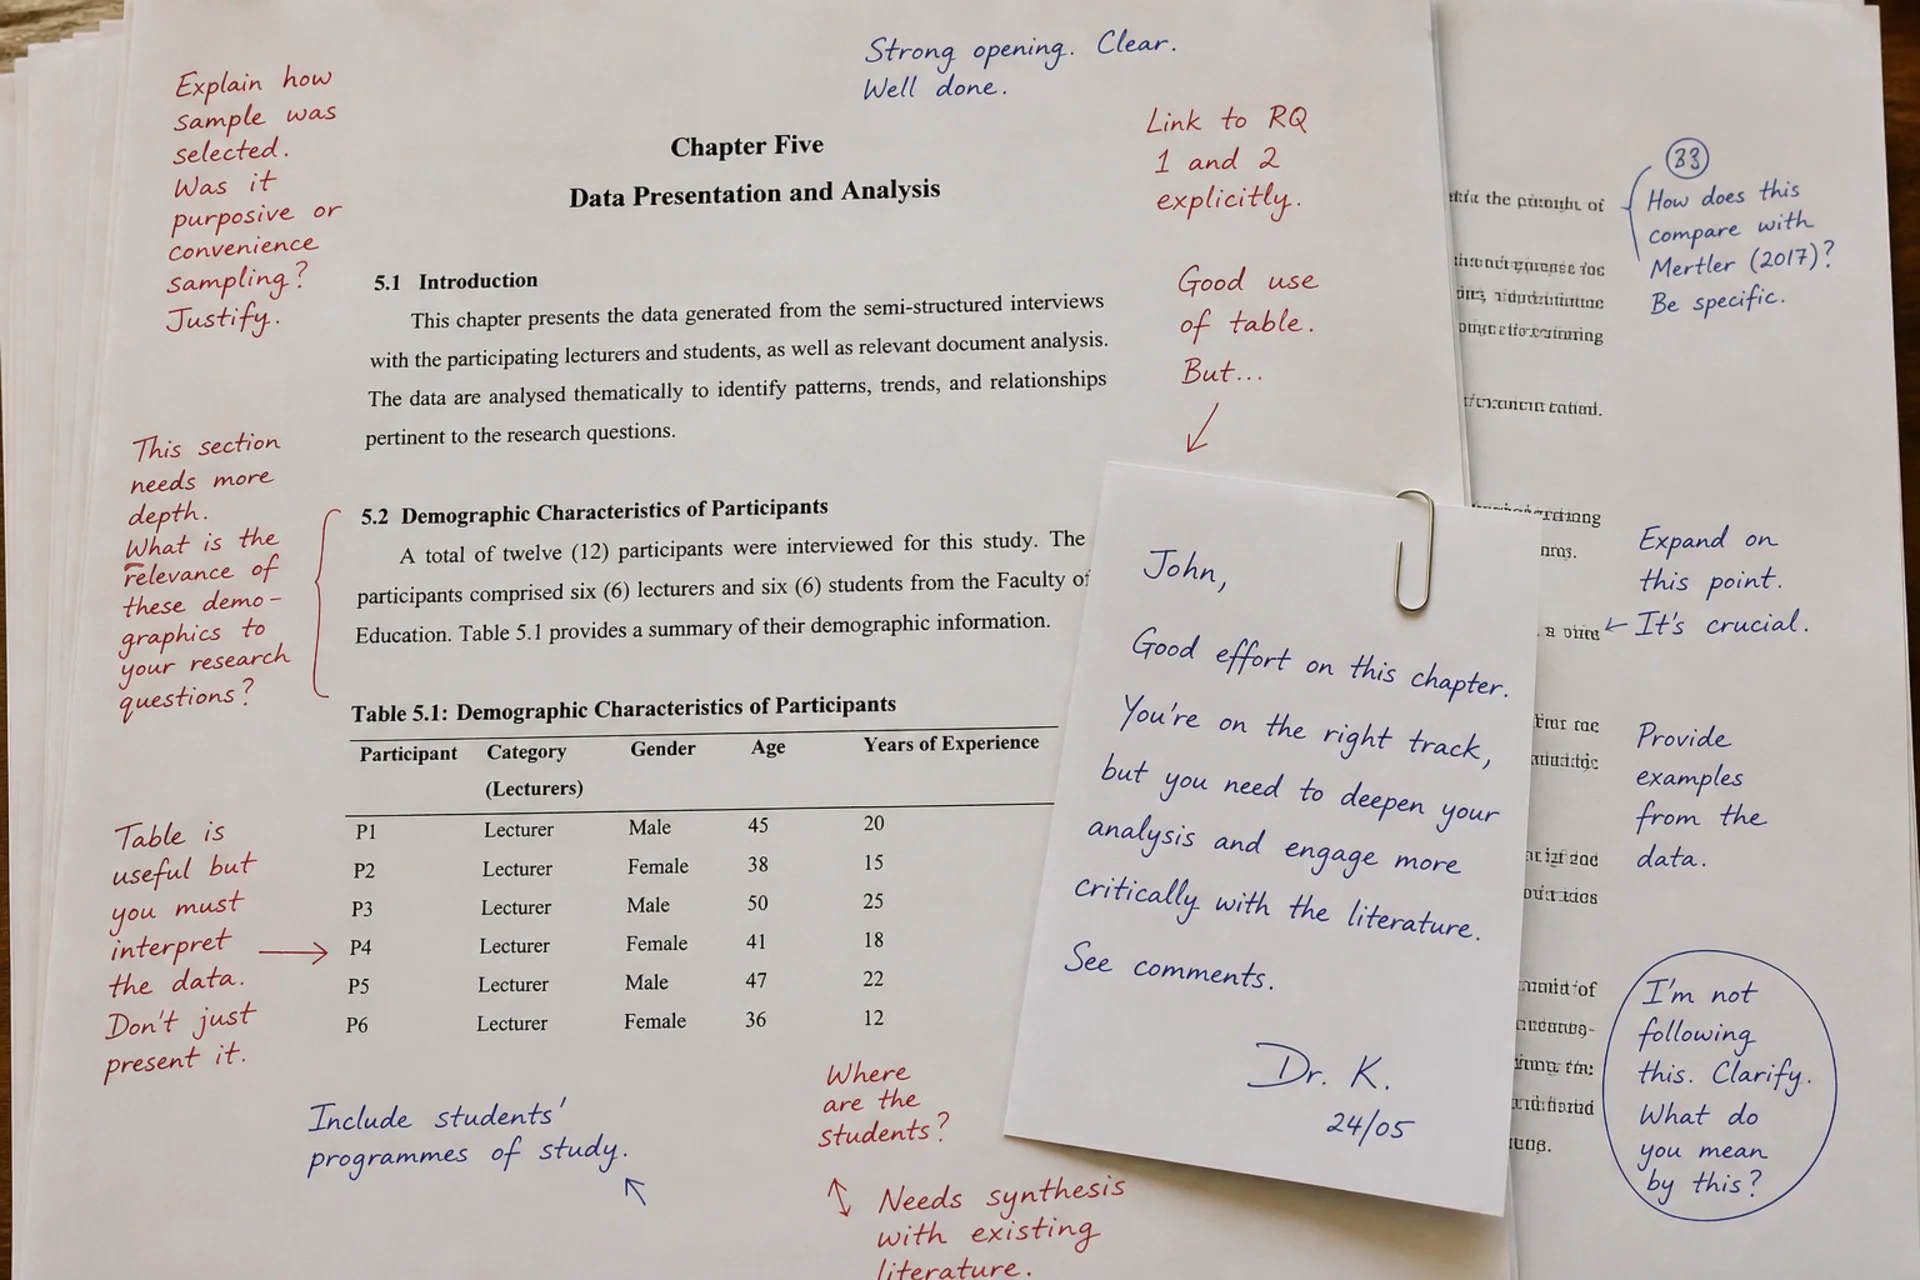 Strong opening. Clear.
Well done.
Explain how
sample was
selected.
Was it
purposive or
convenience
sampling?
Justify.
Link to RQ
1 and 2
explicitly.
Good use
of table.
But...
Chapter Five
Data Presentation and Analysis
5.1 Introduction
This chapter presents the data generated from the semi-structured interviews
with the participating lecturers and students, as well as relevant document analysis.
The data are analysed thematically to identify patterns, trends, and relationships
pertinent to the research questions.
This section
needs more
depth.
What is the
relevance of
these demo-
graphics to
your research
questions?
5.2 Demographic Characteristics of Participants
A total of twelve (12) participants were interviewed for this study. The
participants comprised six (6) lecturers and six (6) students from the Faculty of
Education. Table 5.1 provides a summary of their demographic information.
Table 5.1: Demographic Characteristics of Participants
Participant Category Gender Age Years of Experience
(Lecturers)
P1 Lecturer Male 45 20
P2 Lecturer Female 38 15
P3 Lecturer Male 50 25
P4 Lecturer Female 41 18
P5 Lecturer Male 47 22
P6 Lecturer Female 36 12
Table is
useful but
you must
interpret
the data.
Don't just
present it.
Include students'
programmes of study.
Where
are the
students?
Needs synthesis
with existing
literature.
John,
Good effort on this chapter.
You're on the right track,
but you need to deepen your
analysis and engage more
critically with the literature.
See comments.
Dr. K.
24/05
the of
33
How does this
compare with
Mertler (2017)?
Be specific.
Expand on
this point.
It's crucial.
Provide
examples
from the
data.
I'm not
following
this. Clarify.
What do
you mean
by this?